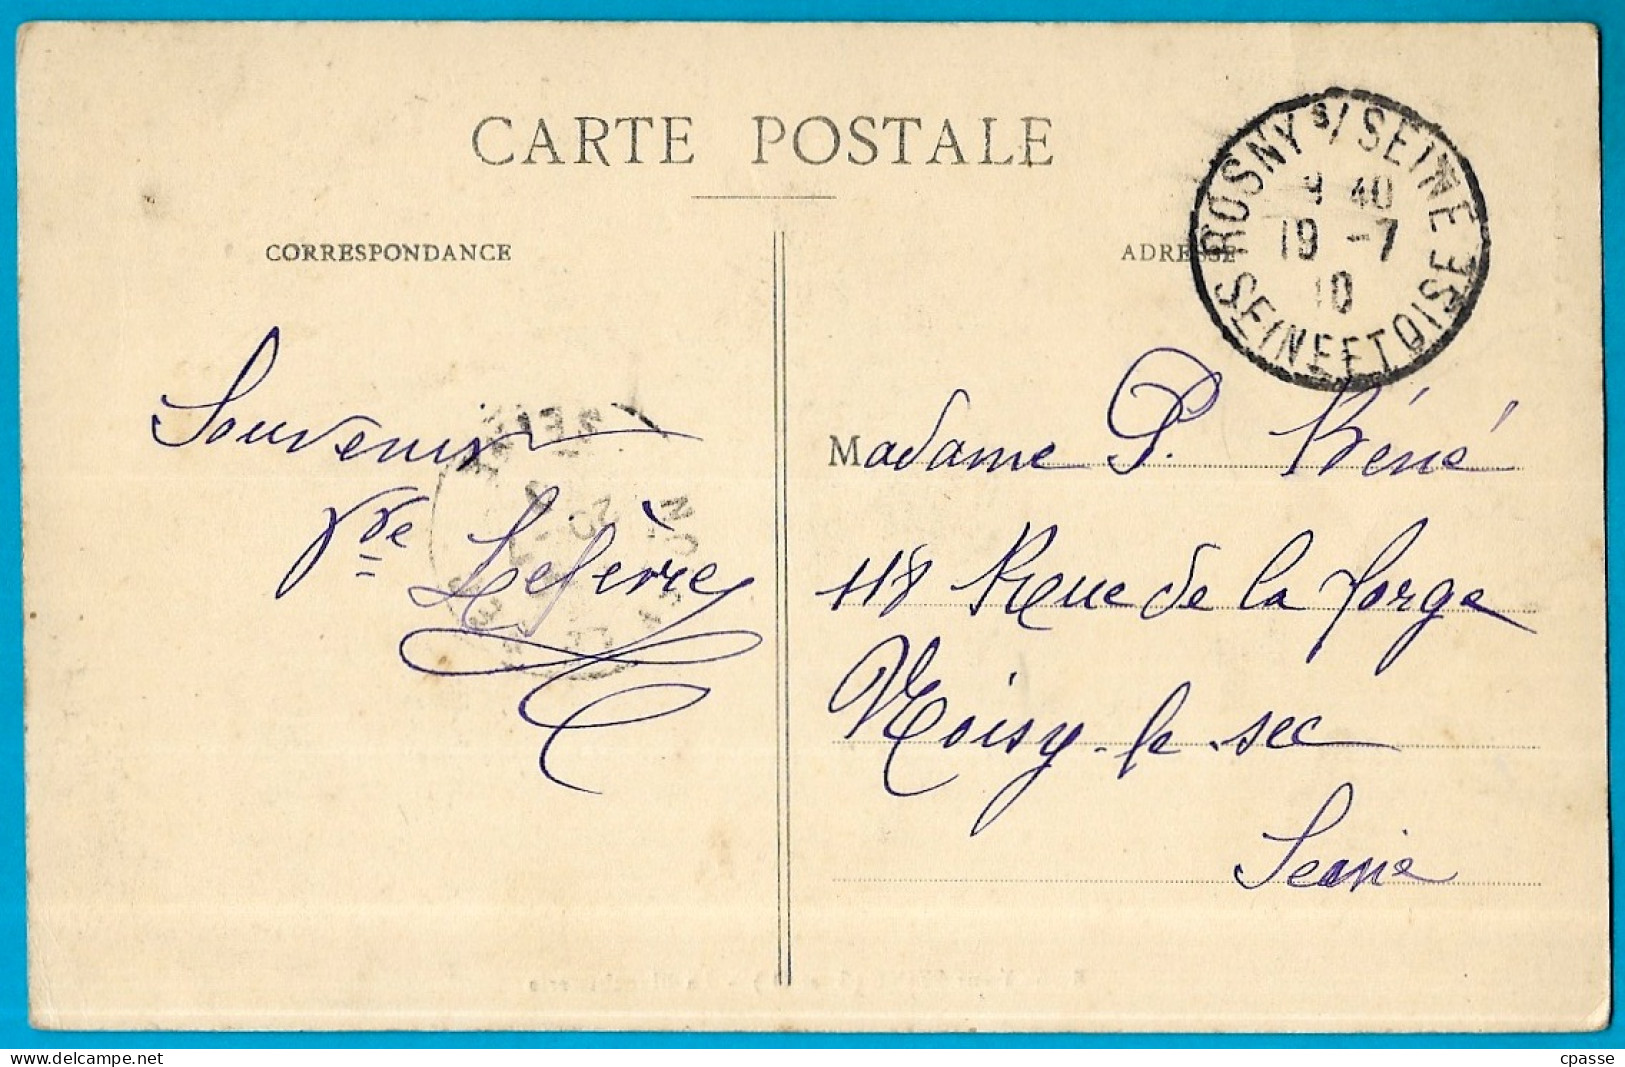 CARTE POSTALE
CORRESPONDANCE
ADRESSE
ROSNY S/ SEINE
40
19 -7
10
SEINE ET OISE
Souvenir
Vve Lefèvre
Madame P. Réné
118 Rue de la forge
Noisy-le-sec
Seine
20
cpasse